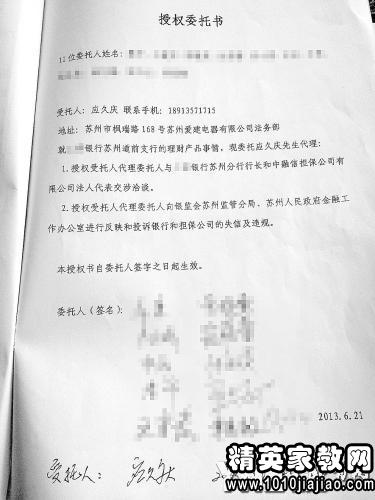 授权委托书
11位委托人姓名：
受托人：应久庆 联系手机：18913571715
地址：苏州市枫瑞路168号苏州爱建电器有限公司法务部
就 银行苏州道前支行的理财产品事情，现委托应久庆先生代理：
1.授权受托人代理委托人与 银行苏州分行行长和中融信担保公司有
限公司法人代表交涉洽谈。
2.授权受托人代理委托人向银监会苏州监管分局、苏州人民政府金融工
作办公室进行反映和投诉银行和担保公司的失信及违规。
本授权书自委托人签字之日起生效。
委托人（签名）：
2013.6.21
受托人： 应久庆
精英家教网
www.1010jiajiao.com